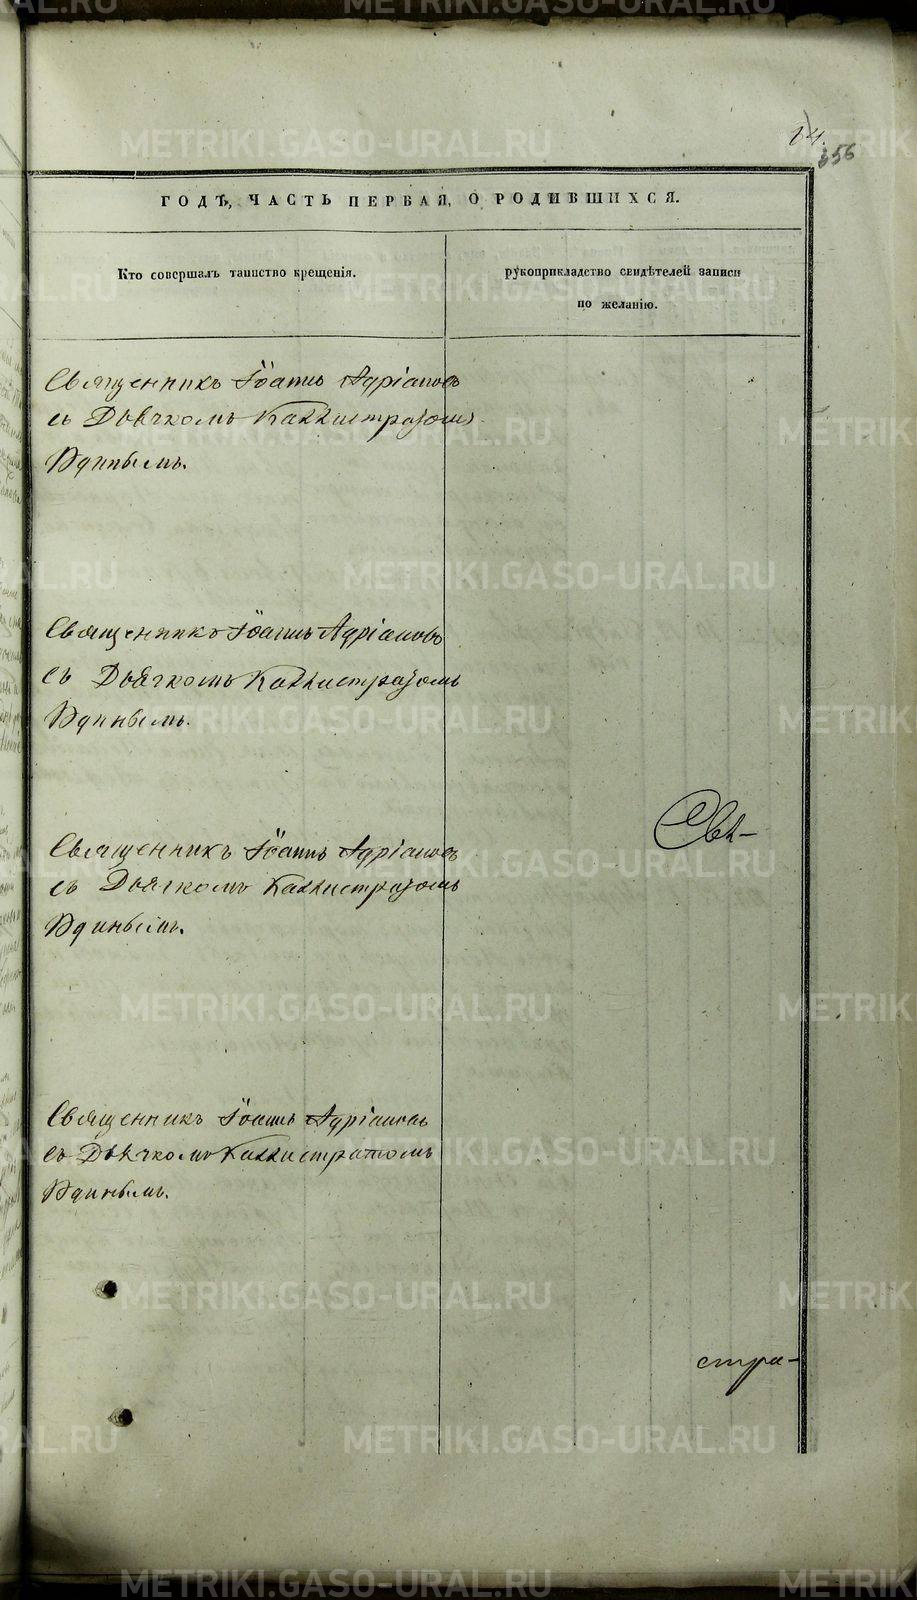 64.
356
ГОДѢ, ЧАСТЬ ПЕРВАЯ, О РОДИВШИХСЯ.
Кто совершалъ таинство крещенія.
рукоприкладство свидѣтелей записи
по желанію.
Священникъ Іоаннъ Адріановъ
съ Дьячкомъ Каллистратомъ
Удинымъ.
Священникъ Іоаннъ Адріановъ
съ Дьячкомъ Каллистратомъ
Удинымъ.
Свя-
Священникъ Іоаннъ Адріановъ
съ Дьячкомъ Каллистратомъ
Удинымъ.
Священникъ Іоаннъ Адріановъ
съ Дьячкомъ Каллистратомъ
Удинымъ.
стра-
METRIKI.GASO-URAL.RU